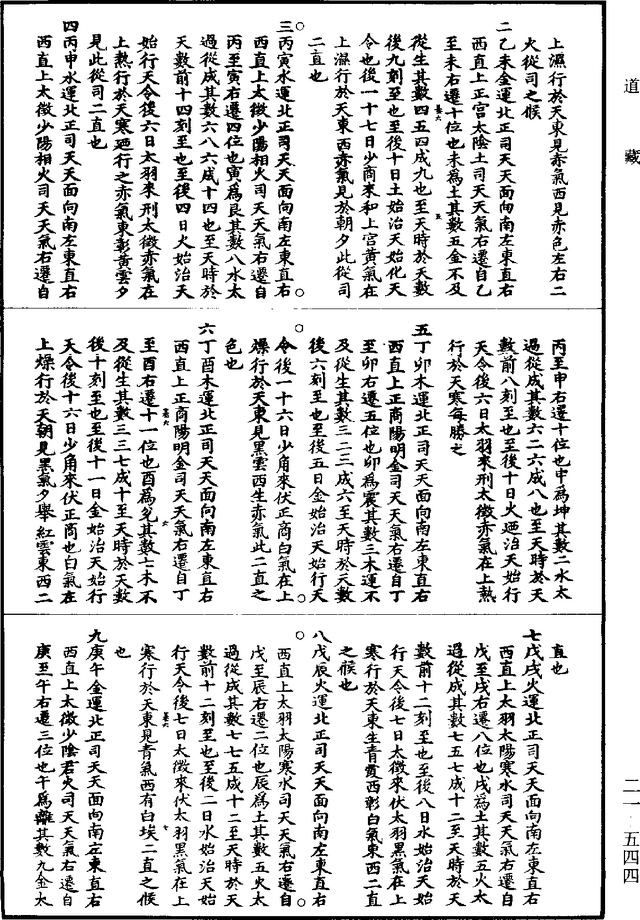 道藏
上濕行於天東見赤氣西見赤色左右二
火從司之候
二乙未金運北正司天天面向南左東直右
西直上正宮太陰土司天天氣右遷自乙
至未右遷十位也未為土其數五金不及
從生其數四五四成九也至天時於天數
後九刻至也至後十日土始治天始化天
令也後一十七日少商來和上宮黃氣在
上濕行於天東西赤氣見於朝夕此從司
二直也
三丙寅水運北正司天天面向南左東直右
西直上太徵少陽相火司天天氣右遷自
丙至寅右遷四位也寅為艮其數八水太
過從成其數六八六成十四也至天時於
天數前十四刻至也至後四日火始治天
始行天令後六日太羽來刑太徵赤氣在
上熱行於天寒迺行之赤氣東彰黃雲夕
見此從司二直也
四丙申水運北正司天天面向南左東直右
西直上太徵少陽相火司天天氣右遷自
丙至申右遷十位也申為坤其數二水太
過從成其數六二六成八也至天時於天
數前八刻至也至後十日火迺治天始行
天令後六日太羽來刑太徵赤氣在上熱
行於天寒每勝之
五丁卯木運北正司天天面向南左東直右
西直上正商陽明金司天天氣右遷自丁
至卯右遷五位也卯為震其數三木運不
及從生其數三二三成六至天時於天數
後六刻至也至後五日金始治天始行天
令後一十六日少角來伏正商白氣在上
燥行於天東見黑雲西生赤氣此二直之
色也
六丁酉木運北正司天天面向南左東直右
西直上正商陽明金司天天氣右遷自丁
至酉右遷十一位也酉為兌其數七木不
及從生其數三三七成十至天時於天數
後十刻至也至後十一日金始治天始行
天令後十六日少角來伏正商也白氣在
上燥行於天朝見黑氣夕舉紅雲東西二
直也
七戊戌火運北正司天天面向南左東直右
西直上太羽太陽寒水司天天氣右遷自
戊至戌右遷八位也戌為土其數五火太
過從成其數七五七成十二至天時於天
數前十二刻至也至後八日水始治天始
行天令後七日太徵來伏太羽黑氣在上
寒行於天東生青霞西彰白氣東西二直
之候也
八戊辰火運北正司天天面向南左東直右
西直上太羽太陽寒水司天天氣右遷自
戊至辰右遷二位也辰為土其數五火太
過從成其數七七五成十二至天時於天
數前十二刻至也至後二日水始治天始
行天令後七日太徵來伏太羽黑氣在上
寒行於天東見青氣西有白埃二直之候
也
九庚午金運北正司天天面向南左東直右
西直上太徵少陰君火司天天氣右遷自
庚至午右遷三位也午為離其數九金太
二一·五四四